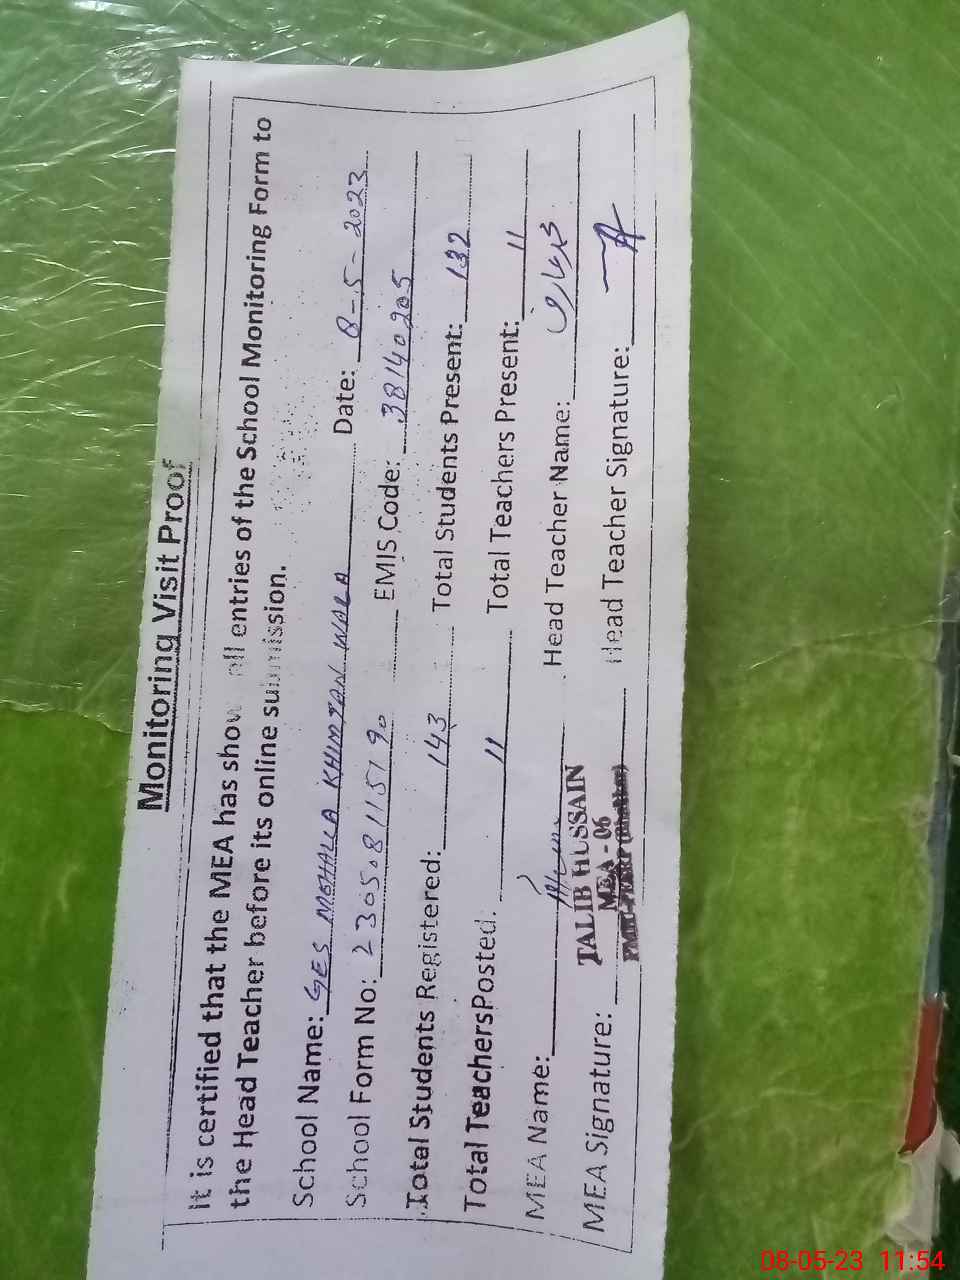 Monitoring Visit Proof
It is certified that the MEA has show all entries of the School Monitoring Form to
the Head Teacher before its online submission.
School Name: GES MOHALLA KHIMTAN WALA Date: 8-5-2023
School Form No: 230508115190 EMIS Code: 38140205
Total Students Registered: 143 Total Students Present: 132
Total Teachers Posted. 11 Total Teachers Present: 11
MEA Name: Head Teacher Name:
TALIB HUSSAIN
MEA - 06
MEA Signature: Head Teacher Signature:
08-05-23 11:54